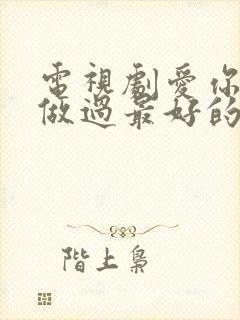 電視劇愛你
做過最好的
階上梟